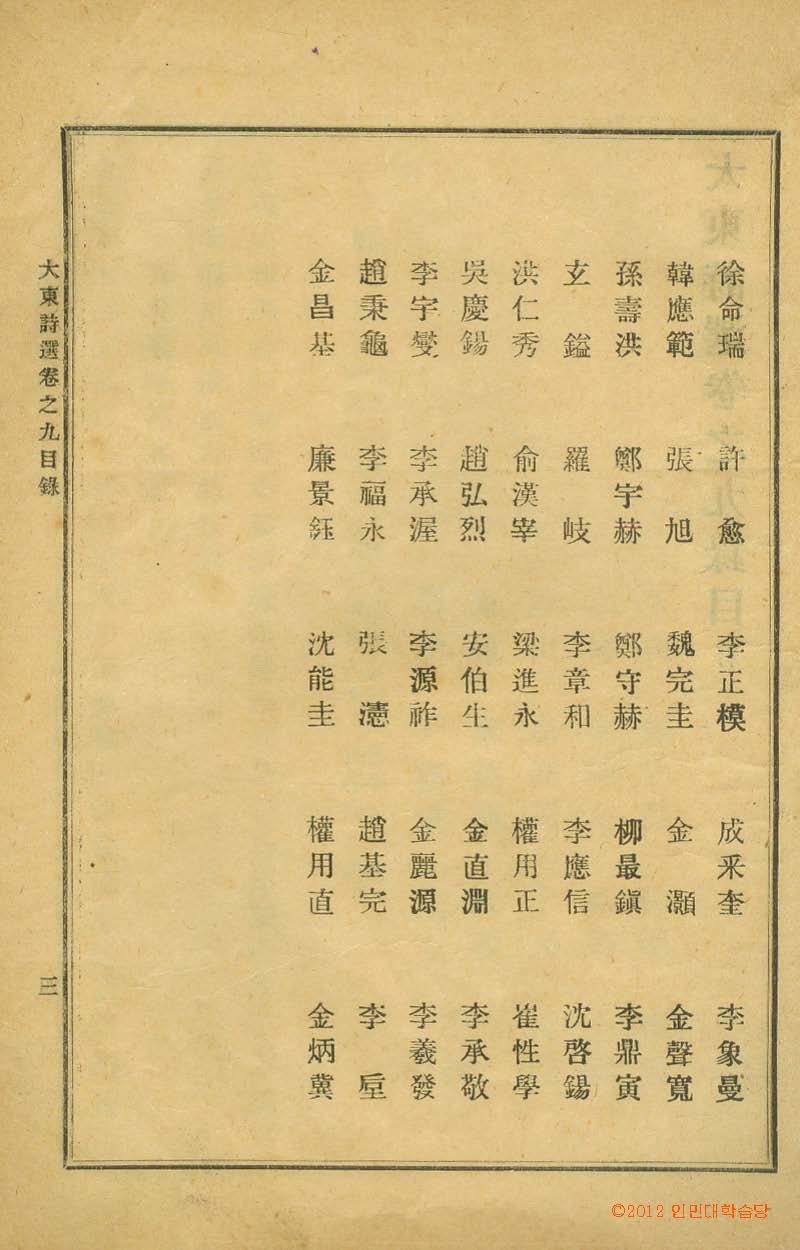 徐命瑞 許愈 李正模 成釆奎 李象曼
韓應範 張旭 魏完圭 金灝 金聲寬
孫壽洪 鄭宇赫 鄭守赫 柳最鎭 李鼎寅
玄鎰 羅岐 李章和 李應信 沈啓錫
洪仁秀 俞漢宰 梁進永 權用正 崔性學
吳慶錫 趙弘烈 安伯生 金直淵 李承敬
李宇燮 李承渥 李源祚 金麗源 李羲發
趙秉龜 李福永 張憓 趙基完 李垕
金昌基 廉景鈺 沈能圭 權用直 金炳冀
大東詩選卷之九目錄 三
©2012 인민대학습당